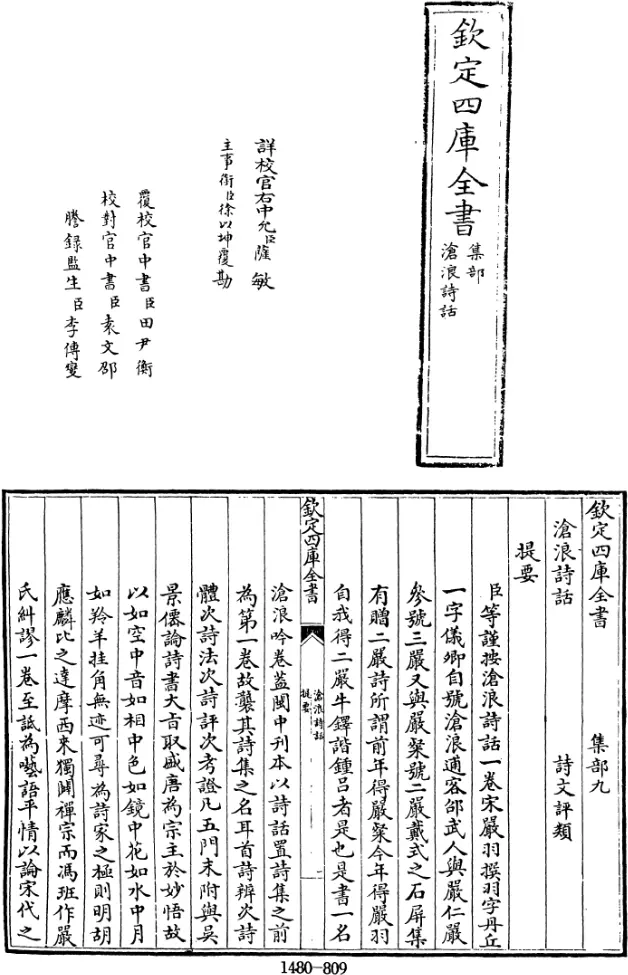 欽定四庫全書
集部
滄浪詩話
詳校官右中允臣薩敏
主事銜臣徐以坤覆勘
覆校官中書臣田尹衡
校對官中書臣袁文邵
謄錄監生臣李傳燮
欽定四庫全書 集部九
滄浪詩話 詩文評類
提要
臣等謹按滄浪詩話一卷宋嚴羽撰羽字丹丘
一字儀卿自號滄浪逋客邵武人與嚴仁嚴
參號三嚴又與嚴粲號二嚴戴式之石屏集
有贈二嚴詩所謂前年得嚴粲今年得嚴羽
自我得二嚴牛鐸諧鍾呂者是也是書一名
欽定四庫全書
滄浪詩話
提要
一
滄浪吟卷蓋閩中刊本以詩話置詩集之前
為第一卷故襲其詩集之名耳首詩辨次詩
體次詩法次詩評次考證凡五門末附與吳
景僊論詩書大㫖取盛唐為宗主於妙悟故
以如空中音如相中色如鏡中花如水中月
如羚羊挂角無迹可尋為詩家之極則明胡
應麟比之達摩西來獨闢禪宗而馮班作嚴
氏糾謬一卷至詆為囈語平情以論宋代之
1480-809